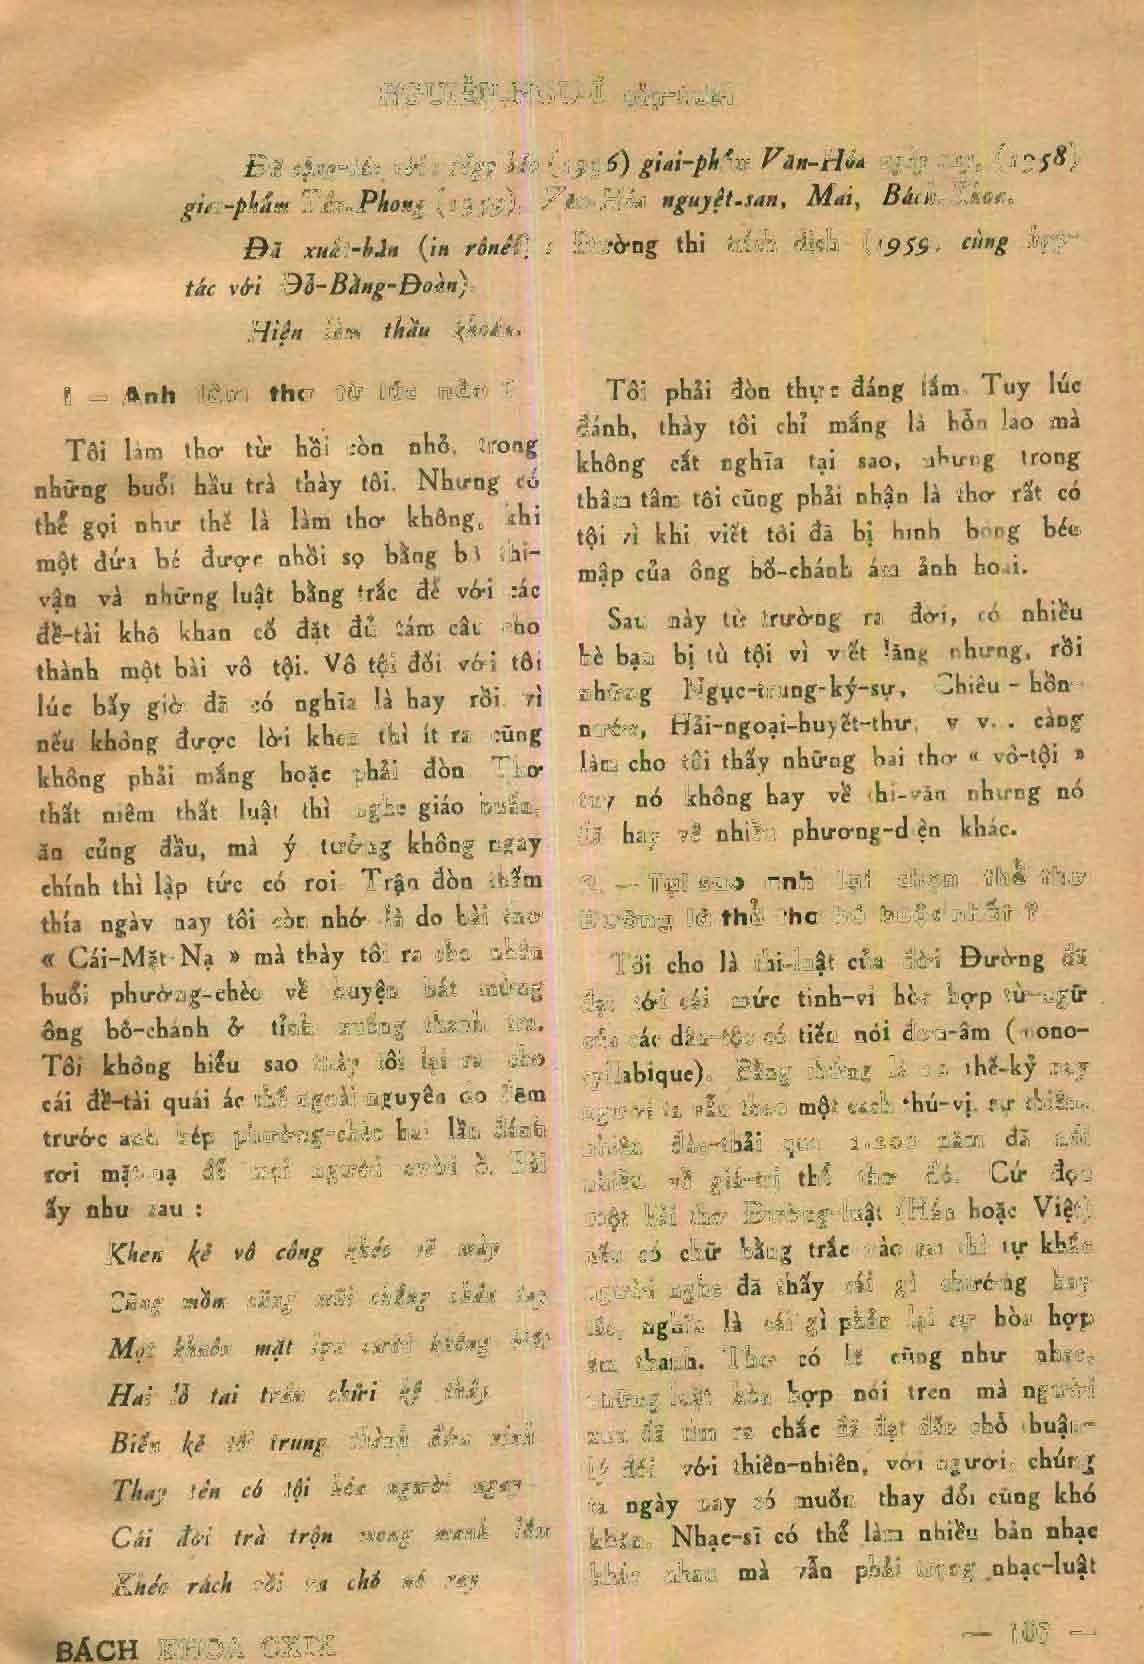 giai-phẩm Văn-Hóa ngày nay, (1958)
giai-phẩm Tân-Phong (1959), Văn-Hóa nguyệt-san, Mai, Bách-Khoa.
Đã xuất-bản (in rônéo) : Đường thi trích dịch (1959, cùng hợp-
tác với Đỗ-Bằng-Đoàn).
Hiện làm thầu khoán.
1 — Anh làm thơ từ lúc nào ?
Tôi làm thơ từ hồi còn nhỏ, trong
những buổi hầu trà thày tôi. Nhưng có
thể gọi như thế là làm thơ không, khi
một đứa bé được nhồi sọ bằng bộ thi-
vận và những luật bằng trắc để với các
đề-tài khô khan cố đặt đủ tám câu cho
thành một bài vô tội. Vô tội đối với tôi
lúc bấy giờ đã có nghĩa là hay rồi vì
nếu không được lời khen thì ít ra cũng
không phải mắng hoặc phải đòn Thơ
thất niêm thất luật thì nghe giáo huấn,
ăn củng đầu, mà ý tưởng không ngay
chính thì lập tức có roi. Trận đòn thấm
thía ngày nay tôi còn nhớ là do bài thơ
« Cái-Mặt-Nạ » mà thày tôi ra cho nhân
buổi phường-chèo về huyện hát mừng
ông bố-chánh ở tỉnh xuống thanh tra.
Tôi không hiểu sao thày tôi lại ra cho
cái đề-tài quái ác thế ngoài nguyên do đêm
trước anh kép phường-chèo hai lần đánh
rơi mặt-nạ để mọi người cười ồ. Bài
ấy như sau :
Khen kẻ vô công khéo vẽ mày
Cũng mồm cũng mũi chẳng chân tay
Mọi khuôn mặt lợn cười không biết
Hai lỗ tai trâu chửi kệ thây
Biến kẻ tôi trung thành đứa nịnh
Thay tên có tội hóa người ngay
Cái đời trà trộn mong manh lắm
Khéo rách rồi ra chỗ nó ray
Tôi phải đòn thực đáng lắm. Tuy lúc
đánh, thày tôi chỉ mắng là hỗn láo mà
không cắt nghĩa tại sao, nhưng trong
thâm tâm tôi cũng phải nhận là thơ rất có
tội vì khi viết tôi đã bị hình bóng béo
mập của ông bố-chánh ám ảnh hoài.
Sau này từ trường ra đời, có nhiều
bè bạn bị tù tội vì viết lăng nhăng, rồi
những Ngục-trung-ký-sự, Chiêu-hồn-
nước, Hải-ngoại-huyết-thư, v v... càng
làm cho tôi thấy những bài thơ « vô-tội »
tuy nó không hay về thi-văn nhưng nó
đã hay về nhiều phương-diện khác.
2. — Tại sao anh lại chọn thể thơ
Đường là thể thơ bó buộc nhất ?
Tôi cho là thi-luật của đời Đường đã
đạt tới cái mức tinh-vi hòa hợp từ-ngữ
của các dân-tộc có tiếng nói đơn-âm (mono-
syllabique). Bằng chứng là thế-kỷ nay
người ta vẫn theo một cách thú-vị, sự thiên-
nhiên đào-thải qua 1.200 năm đã nói
nhiều về giá-trị thể thơ đó. Cứ đọc
một bài thơ Đường-luật (Hán hoặc Việt)
nếu có chữ bằng trắc nào sai thì tự khắc
người nghe đã thấy cái gì chướng hay
lạc, nghĩa là cái gì phản lại sự hòa hợp
âm thanh. Thơ có lẽ cũng như nhạc,
những luật hòa hợp nói trên mà người
xưa đã tìm ra chắc đã đạt đến chỗ thuận-
lý đối với thiên-nhiên, với người, chúng
ta ngày nay có muốn thay đổi cũng khó
khăn. Nhạc-sĩ có thể làm nhiều bản nhạc
khác nhau mà vẫn phải trọng nhạc-luật
BÁCH KHOA CXIX
— 107 —